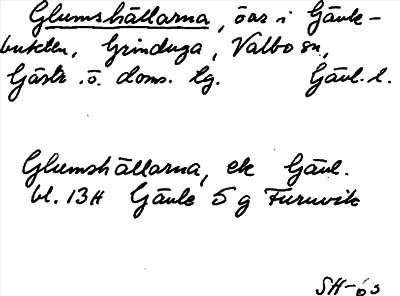 Glumshällarna, öar i Gävle-
bukten, Grinduga, Valbo sn,
Gästr. ö. doms. lg. Gävl. l.
Glumshällarna, ek Gävl.
bl. 13H Gävle 5 g Furuvik
SH-63